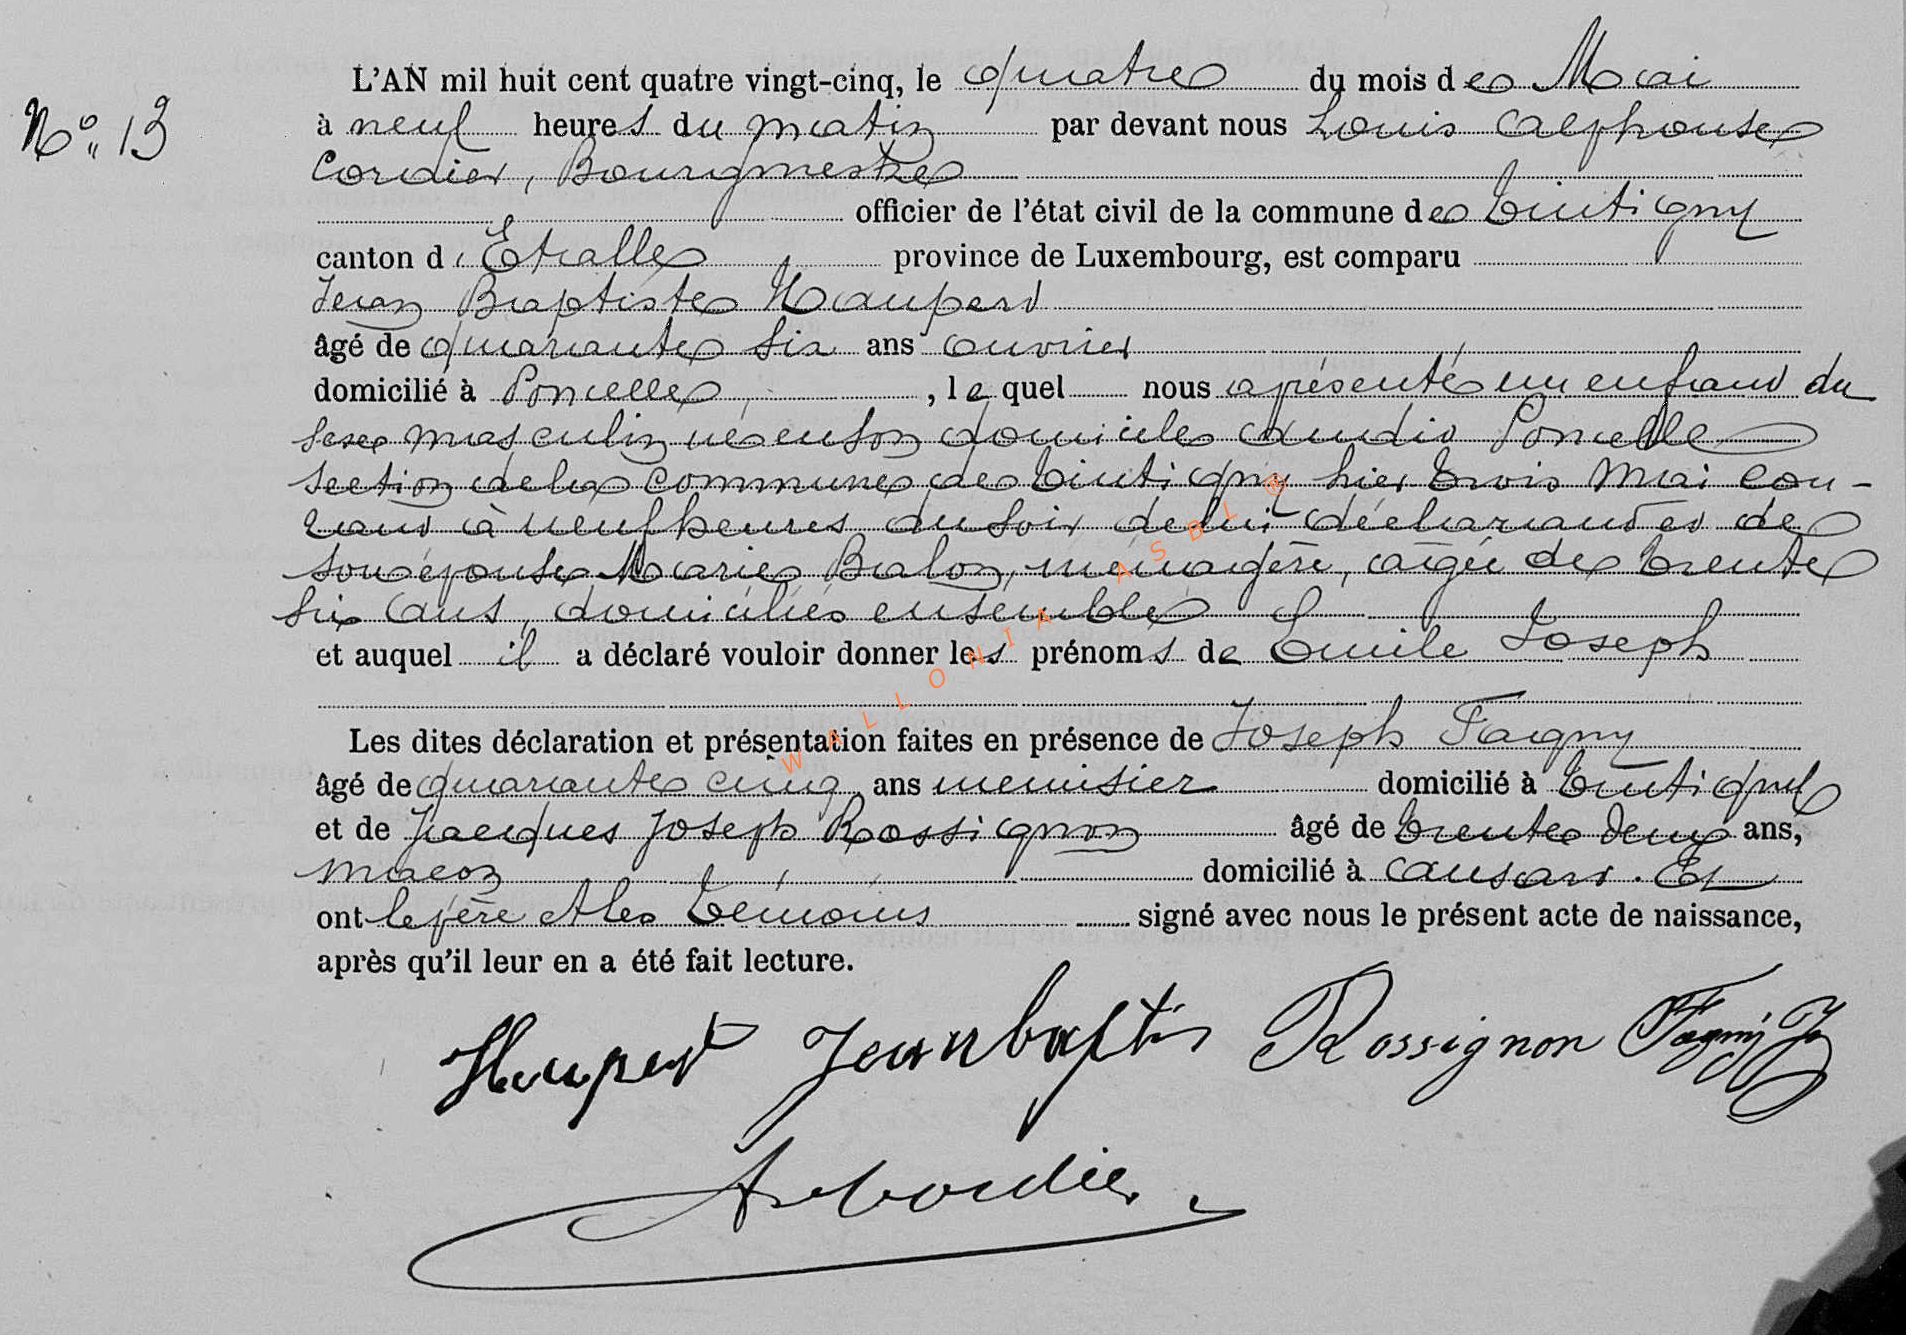 N° 13
L'AN mil huit cent quatre vingt-cinq, le quatre du mois de Mai
à neuf heures du matin par devant nous Louis Alphonse
Cordier, Bourgmestre
officier de l'état civil de la commune de Tintigny
canton d'Etalle province de Luxembourg, est comparu
Jean Baptiste Haupert
âgé de quarante six ans ouvrier
domicilié à Poncelle, lequel nous a présenté un enfant du
sexe masculin né en son domicile audit Poncelle
section de la commune de Tintigny hier trois Mai cou-
rant à neuf heures du soir de lui déclarant et de
son épouse Marie Balon, ménagère, agée de trente
six ans, domiciliés ensemble
et auquel il a déclaré vouloir donner les prénoms de Emile Joseph
Les dites déclaration et présentation faites en présence de Joseph Fagny
âgé de quarante cinq ans menuisier domicilié à Tintigny
et de Jacques Joseph Rossignon âgé de trente deux ans,
macon domicilié à Ansart. Et
ont le père et les témoins signé avec nous le présent acte de naissance,
après qu'il leur en a été fait lecture.
Haupert Jean baptis Rossignon Fagny J
A Cordier
WALLONIA ASBL ®